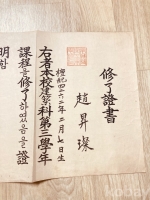 修了證書
趙昇璨
檀紀四二六二年二月七日生
右者本校建築科第三學年
課程을修了하였음을證
明함